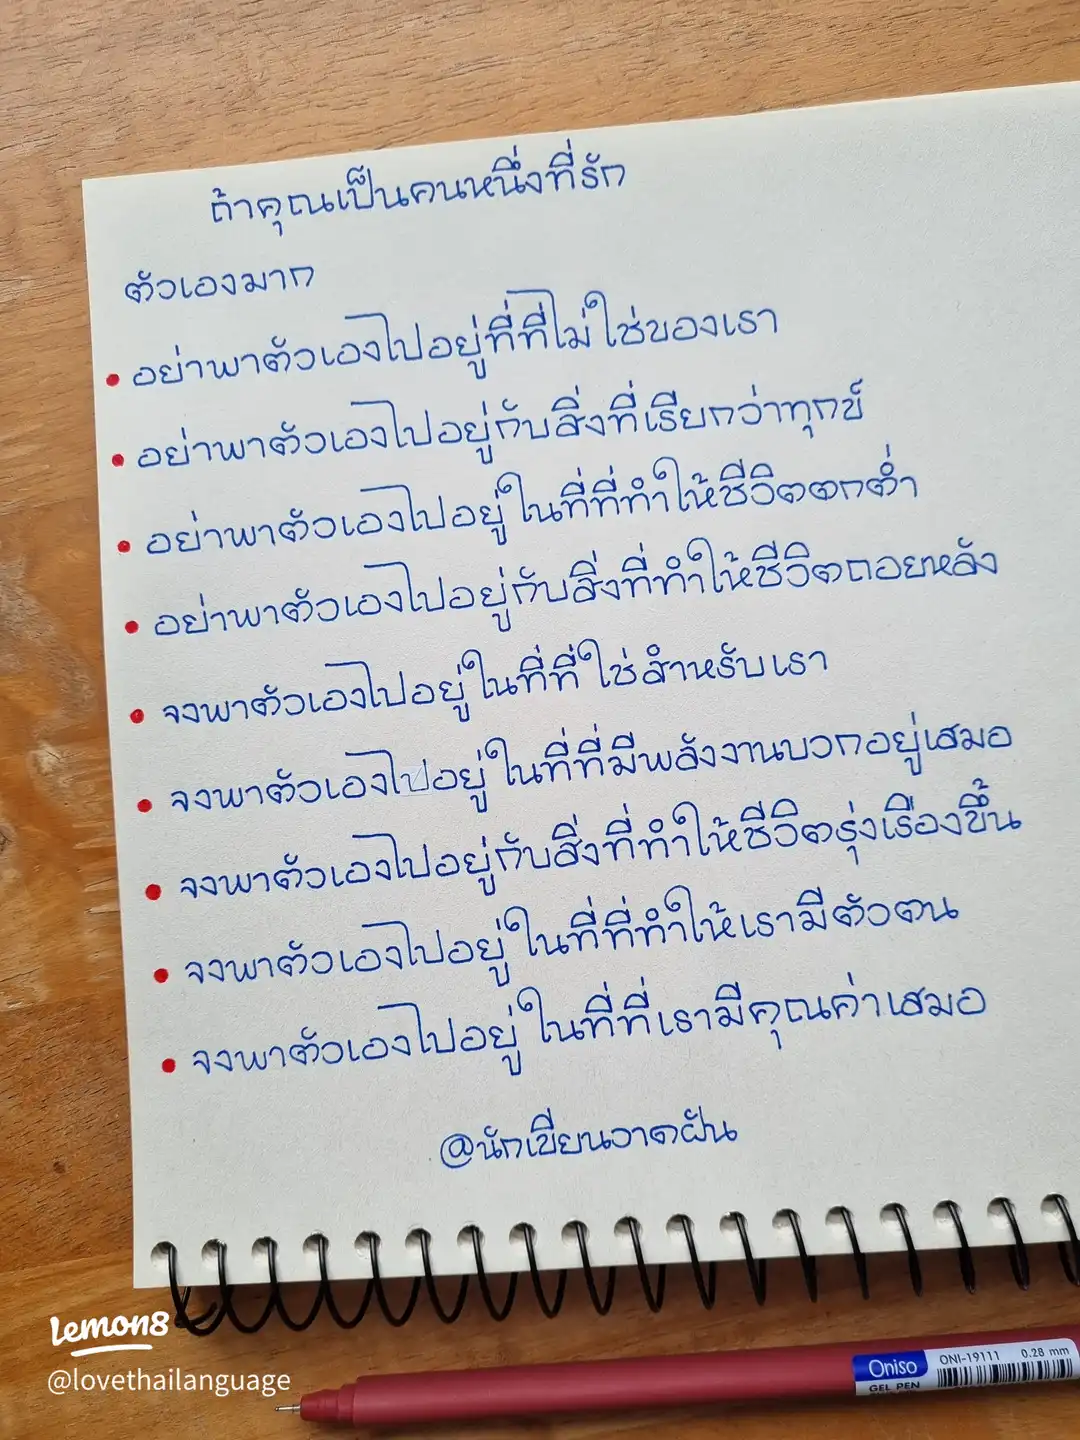 ถ้าคุณเป็นคนหนึ่งที่รัก
ตัวเองมาก
• อย่าพาตัวเองไปอยู่ที่ที่ไม่ใช่ของเรา
• อย่าพาตัวเองไปอยู่กับสิ่งที่เรียกว่าทุกข์
• อย่าพาตัวเองไปอยู่ในที่ที่ทำให้ชีวิตตกต่ำ
• อย่าพาตัวเองไปอยู่กับสิ่งที่ทำให้ชีวิตถอยหลัง
• จงพาตัวเองไปอยู่ในที่ที่ใช่สำหรับเรา
• จงพาตัวเองไปอยู่ในที่ที่มีพลังงานบวกอยู่เสมอ
• จงพาตัวเองไปอยู่กับสิ่งที่ทำให้ชีวิตรุ่งเรืองขึ้น
• จงพาตัวเองไปอยู่ในที่ที่ทำให้เรามีตัวตน
• จงพาตัวเองไปอยู่ในที่ที่เรามีคุณค่าเสมอ
@นักเขียนวาดฝัน
Lemon8
@lovethailanguage
Oniso ONI-19111 0.28 mm
GEL PEN